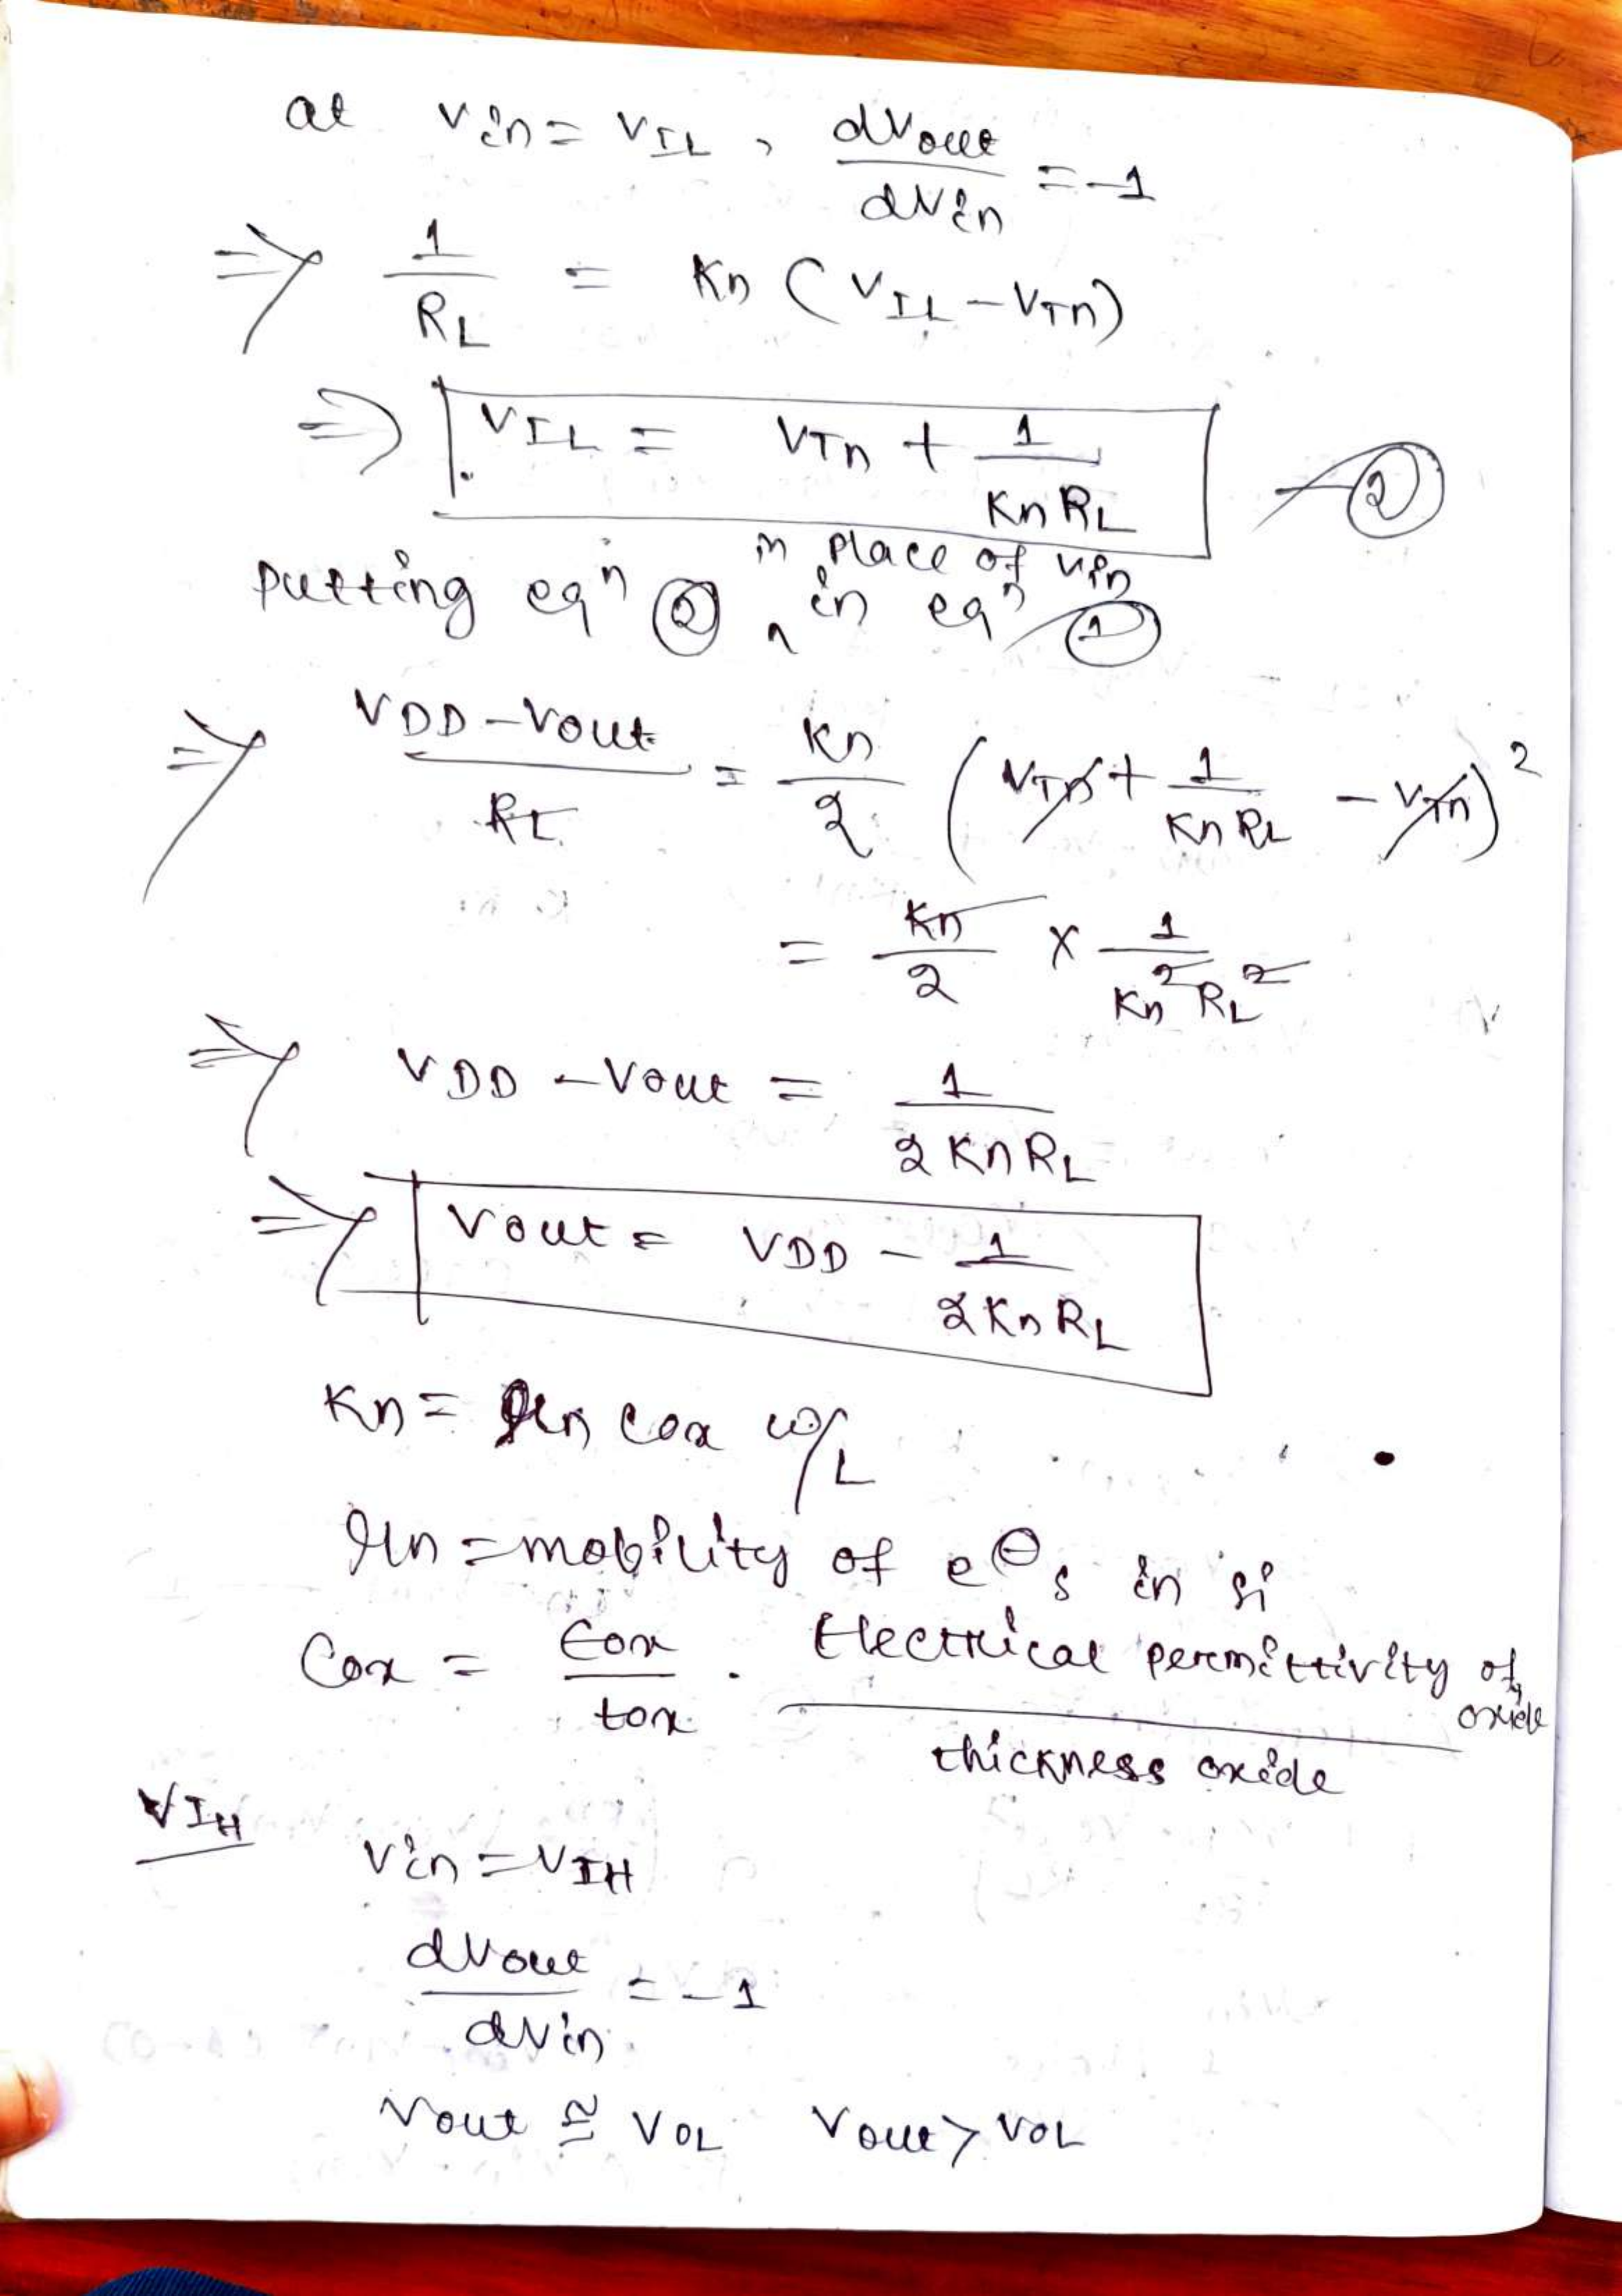 at Vin = VIL , dVout/dVin = -1
⇒ 1/RL = Kn (VIL - VTn)
⇒ VIL = VTn + 1/KnRL — ②
in place of Vin
Putting eqn ② ^ in eqn ①
⇒ VDD - Vout/RL = Kn/2 (VTn + 1/KnRL - VTn)²
= Kn/2 × 1/Kn²RL²
⇒ VDD - Vout = 1/2KnRL
⇒ Vout = VDD - 1/2KnRL
Kn = μn Cox W/L
μn = mobility of e⊖s in Si
Cox = εox/tox . Electrical permittivity of oxide/thickness oxide
VIH
Vin = VIH
dVout/dVin = -1
Vout ≅ VOL Vout > VOL